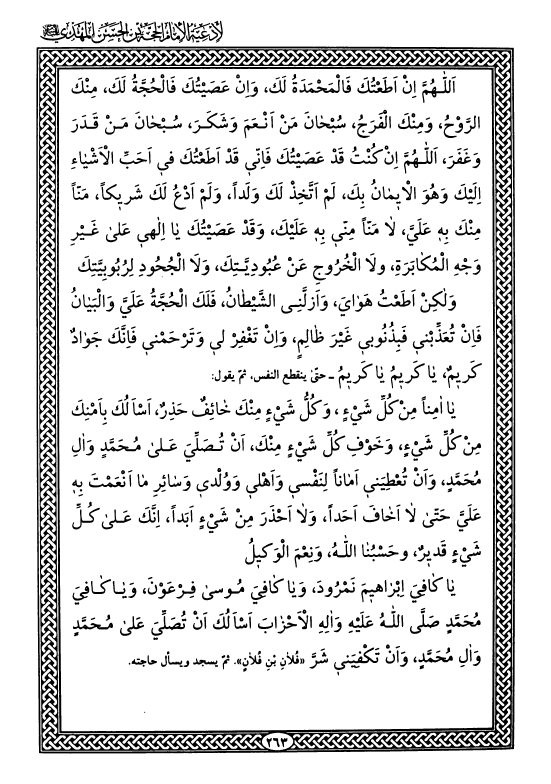 لأدعية الإمام الحجة بن الحسن المهدي
اَللّٰهُمَّ اِنْ اَطَعْتُكَ فَالْمَحْمَدَةُ لَكَ، وَاِنْ عَصَيْتُكَ فَالْحُجَّةُ لَكَ، مِنْكَ
الرَّوْحُ، وَمِنْكَ الْفَرَجُ، سُبْحٰانَ مَنْ اَنْعَمَ وَشَكَرَ، سُبْحٰانَ مَنْ قَدَرَ
وَغَفَرَ، اَللّٰهُمَّ اِنْ كُنْتُ قَدْ عَصَيْتُكَ فَاِنّي قَدْ اَطَعْتُكَ في اَحَبِّ الْاَشْيٰاءِ
اِلَيْكَ وَهُوَ الْايمٰانُ بِكَ، لَمْ اَتَّخِذْ لَكَ وَلَداً، وَلَمْ اَدْعُ لَكَ شَريكاً، مَنّاً
مِنْكَ بِهِ عَلَيَّ، لٰا مَنّاً مِنّي بِهِ عَلَيْكَ، وَقَدْ عَصَيْتُكَ يٰا اِلٰهي عَلىٰ غَيْرِ
وَجْهِ الْمُكٰابَرَةِ، ولَا الْخُرُوجِ عَنْ عُبُودِيَّتِكَ، وَلَا الْجُحُودِ لِرُبُوبِيَّتِكَ
وَلٰكِنْ اَطَعْتُ هَوٰايَ، وَاَزَلَّنِى الشَّيْطٰانُ، فَلَكَ الْحُجَّةُ عَلَيَّ وَالْبَيٰانُ
فَاِنْ تُعَذِّبْني فَبِذُنُوبي غَيْرَ ظٰالِمٍ، وَاِنْ تَغْفِرْ لي وَتَرْحَمْني فَاِنَّكَ جَوٰادٌ
كَريمٌ، يٰا كَريمُ يٰا كَريمُ ـ حتّىٰ ينقطع النفس. ثمّ يقول:
يٰا اٰمِناً مِنْ كُلِّ شَيْءٍ، وَكُلُّ شَيْءٍ مِنْكَ خٰائِفٌ حَذِرٌ، اَسْاَلُكَ بِاَمْنِكَ
مِنْ كُلِّ شَيْءٍ، وَخَوْفِ كُلِّ شَيْءٍ مِنْكَ، اَنْ تُصَلِّيَ عَلىٰ مُحَمَّدٍ وَاٰلِ
مُحَمَّدٍ، وَاَنْ تُعْطِيَني اَمٰاناً لِنَفْسي وَاَهْلي وَوُلْدي وَسٰائِرِ مٰا اَنْعَمْتَ بِهِ
عَلَيَّ حَتّىٰ لٰا اَخٰافَ اَحَداً، وَلٰا اَحْذَرَ مِنْ شَيْءٍ اَبَداً، اِنَّكَ عَلىٰ كُلِّ
شَيْءٍ قَديرٌ، وحَسْبُنَا اللّٰهُ، وَنِعْمَ الْوَكيلُ
يٰا كٰافِيَ اِبْرٰاهيمَ نَمْرُودَ، وَيٰا كٰافِيَ مُوسىٰ فِرْعَوْنَ، وَيٰا كٰافِيَ
مُحَمَّدٍ صَلَّى اللّٰهُ عَلَيْهِ وَاٰلِهِ الْاَحْزٰابَ اَسْاَلُكَ اَنْ تُصَلِّيَ عَلىٰ مُحَمَّدٍ
وَاٰلِ مُحَمَّدٍ، وَاَنْ تَكْفِيَني شَرَّ «فُلٰانِ بْنِ فُلٰانٍ». ثمّ يسجد ويسأل حاجته.
٢٦٣